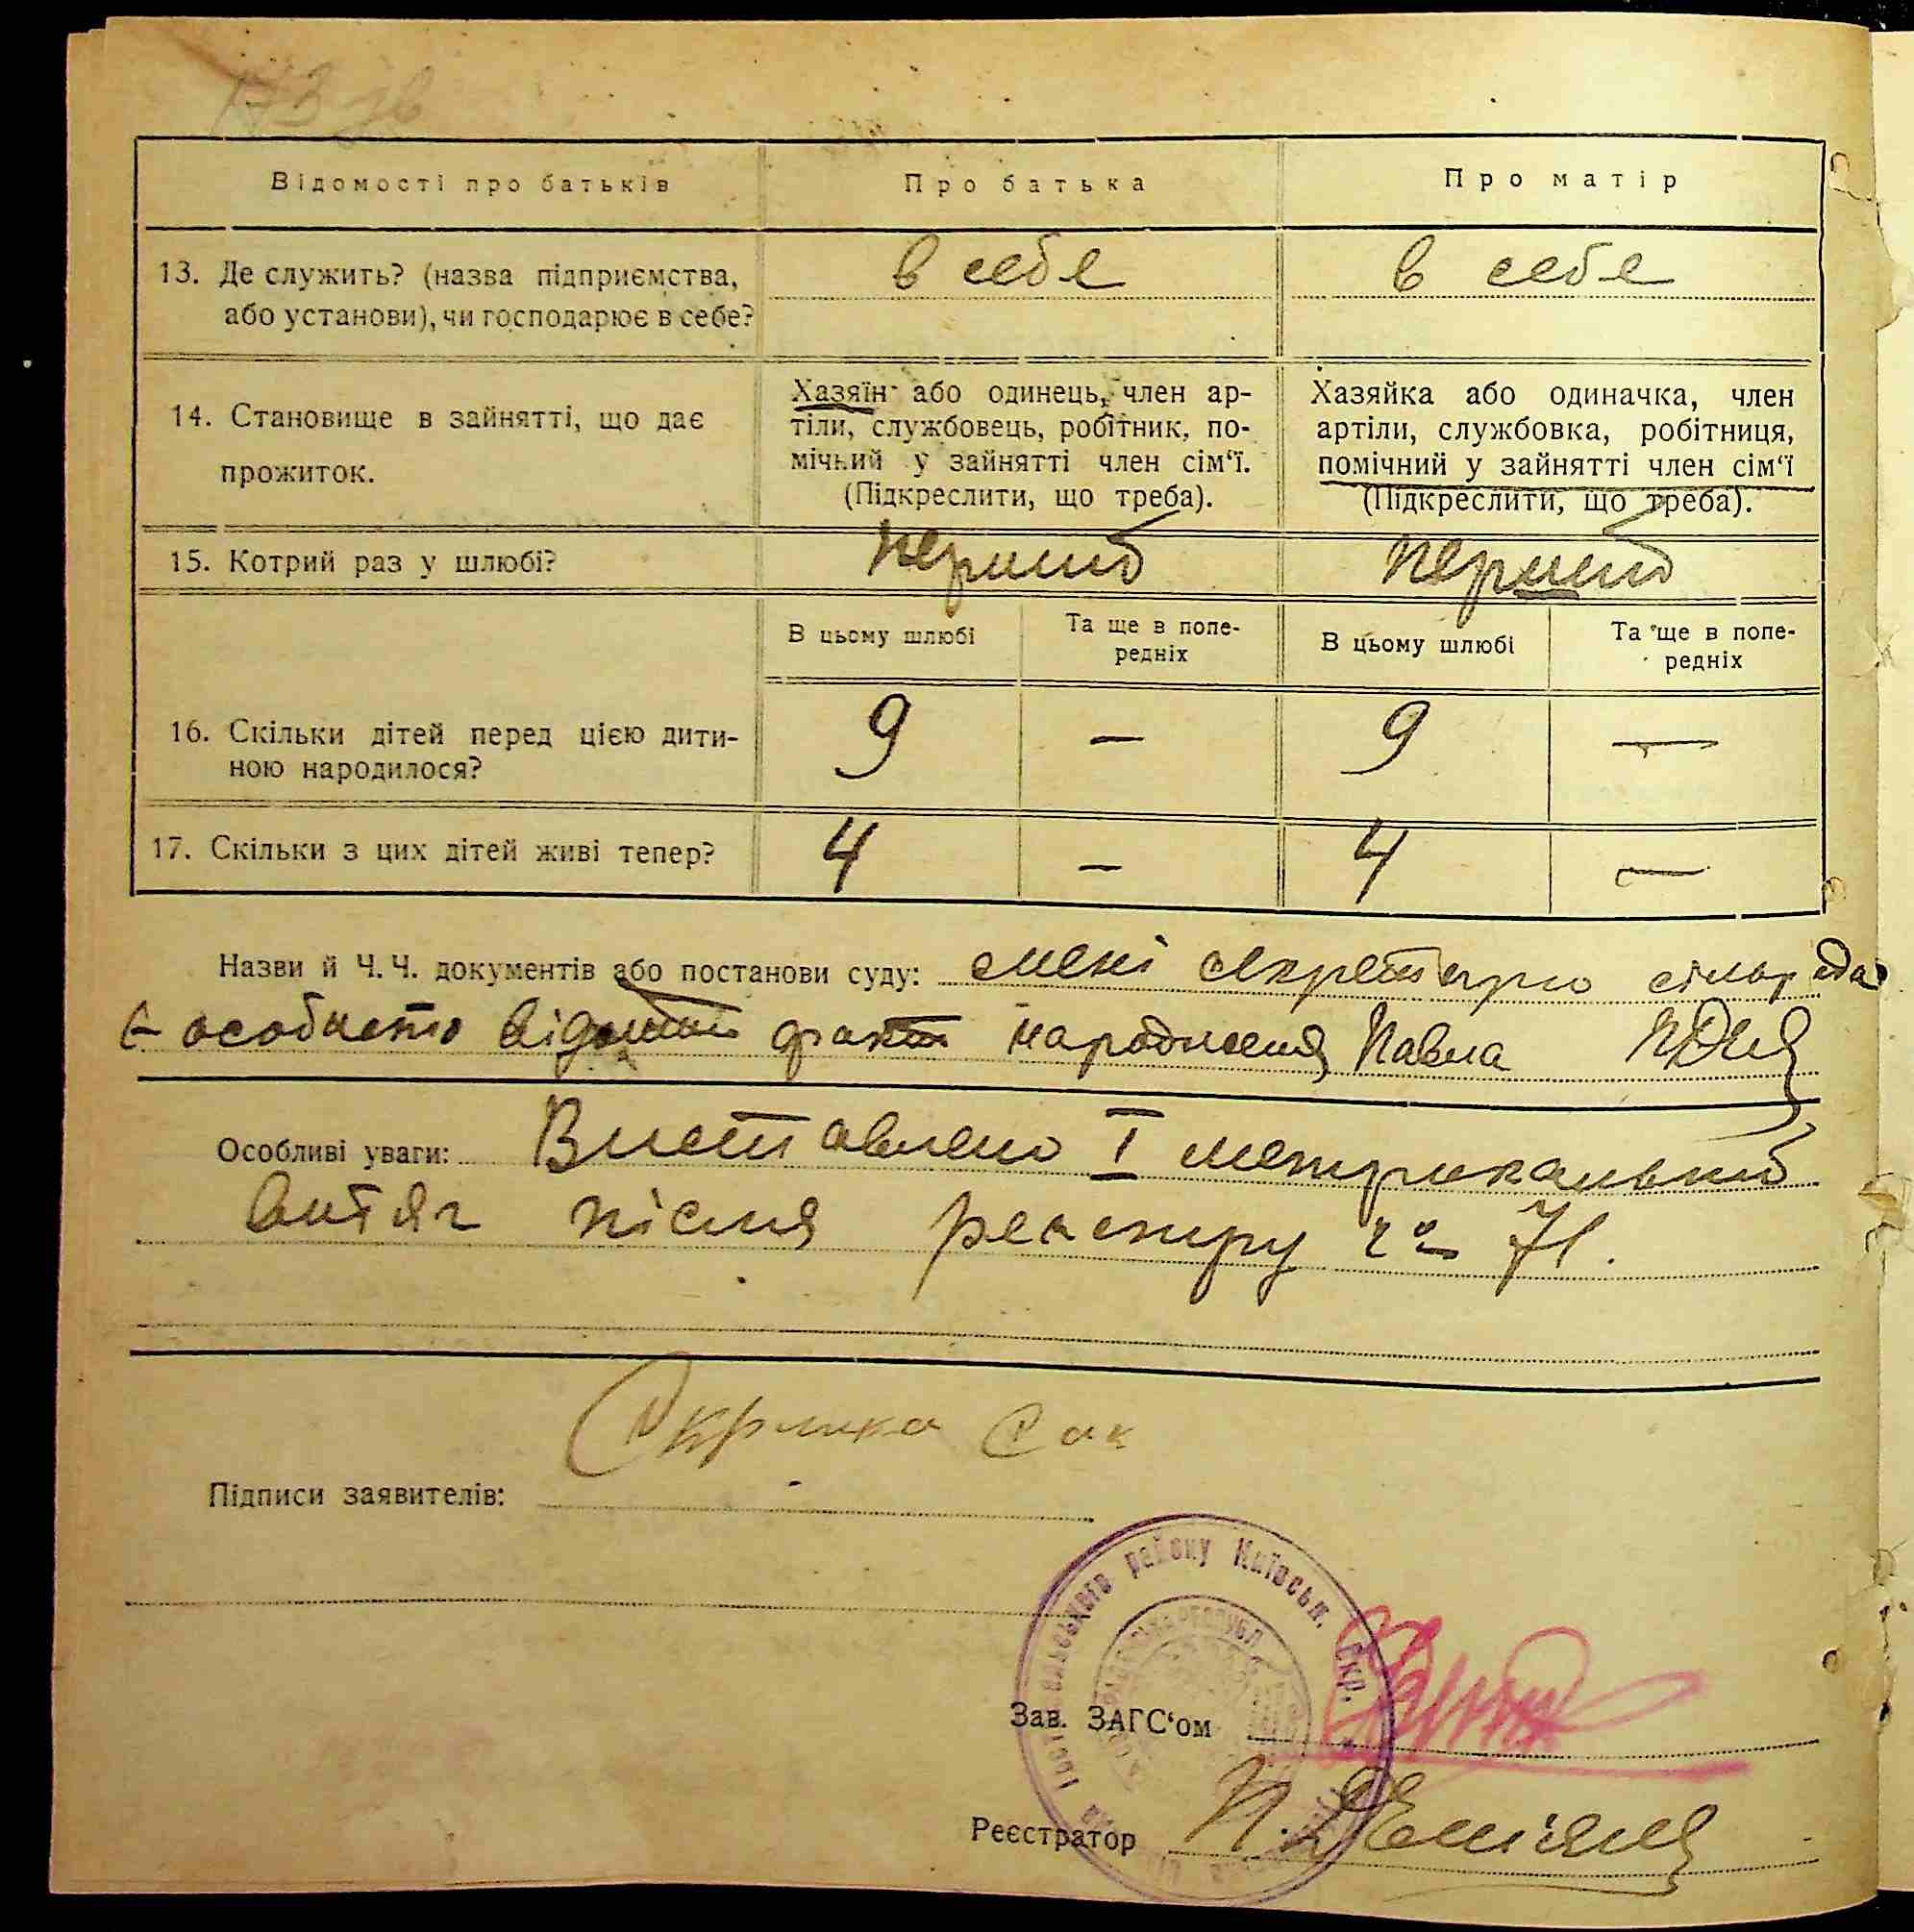 173 зв
Відомості про батьків
Про батька
Про матір
13. Де служить? (назва підприємства,
або установи), чи господарює в себе?
в себе
в себе
14. Становище в зайнятті, що дає
прожиток.
Хазяїн або одинець, член ар-
тіли, службовець, робітник, по-
мічний у зайнятті член сім‘ї.
(Підкреслити, що треба).
Хазяйка або одиначка, член
артіли, службовка, робітниця,
помічний у зайнятті член сім‘ї
(Підкреслити, що треба).
15. Котрий раз у шлюбі?
перший
перший
В цьому шлюбі
Та ще в попе-
редніх
В цьому шлюбі
Та ще в попе-
редніх
16. Скільки дітей перед цією дити-
ною народилося?
9
—
9
—
17. Скільки з цих дітей живі тепер?
4
—
4
—
Назви й Ч. Ч. документів або постанови суду: мені секретарю сільради
особисто відомий факт народження Павла
Особливі уваги: Виставлено I метрикальний
витяг після реєстру 71.
Скрипка Сак
Підписи заявителів:
району Київськ. Окр.
Зав. ЗАГС‘ом
Реєстратор